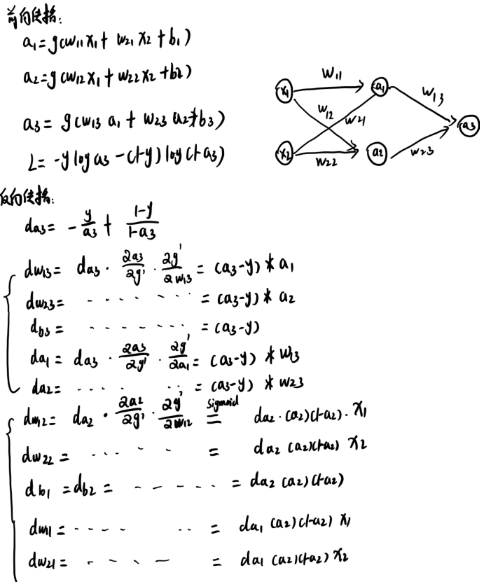 前向传播:
a₁=g(w₁₁x₁+ w₂₁x₂+b₁)
a₂=g(w₁₂x₁+w₂₂x₂+b₂)
a₃= g(w₁₃ a₁+ w₂₃ a₂+b₃)
L= -y log a₃ -(1-y) log(1-a₃)
x₁ w₁₁ a₁ w₁₃
w₁₂ w₂₁ a₃
x₂ w₂₂ a₂ w₂₃
反向传播:
da₃= - y/a₃ + (1-y)/(1-a₃)
dw₁₃= da₃ · ∂a₃/∂g' · ∂g'/∂w₁₃ = (a₃-y) * a₁
dw₂₃= · · · · · · · = (a₃-y) * a₂
db₃= · · · · · · · = (a₃-y)
da₁= da₃ · ∂a₃/∂g' · ∂g'/∂a₁ = (a₃-y) * w₁₃
da₂= · · · · · · = (a₃-y) * w₂₃
dw₁₂= da₂ · ∂a₂/∂g' · ∂g'/∂w₁₂ sigmoid = da₂·(a₂)(1-a₂)·x₁
dw₂₂ = · · · · · = da₂ (a₂)(1-a₂) x₂
db₁ =db₂ = - - - - - - = da₂ (a₂)(1-a₂)
dw₁₁= - - - - · · = da₁ (a₂)(1-a₂) x₁
dw₂₁ = - - - - = da₁ (a₂)(1-a₂) x₂